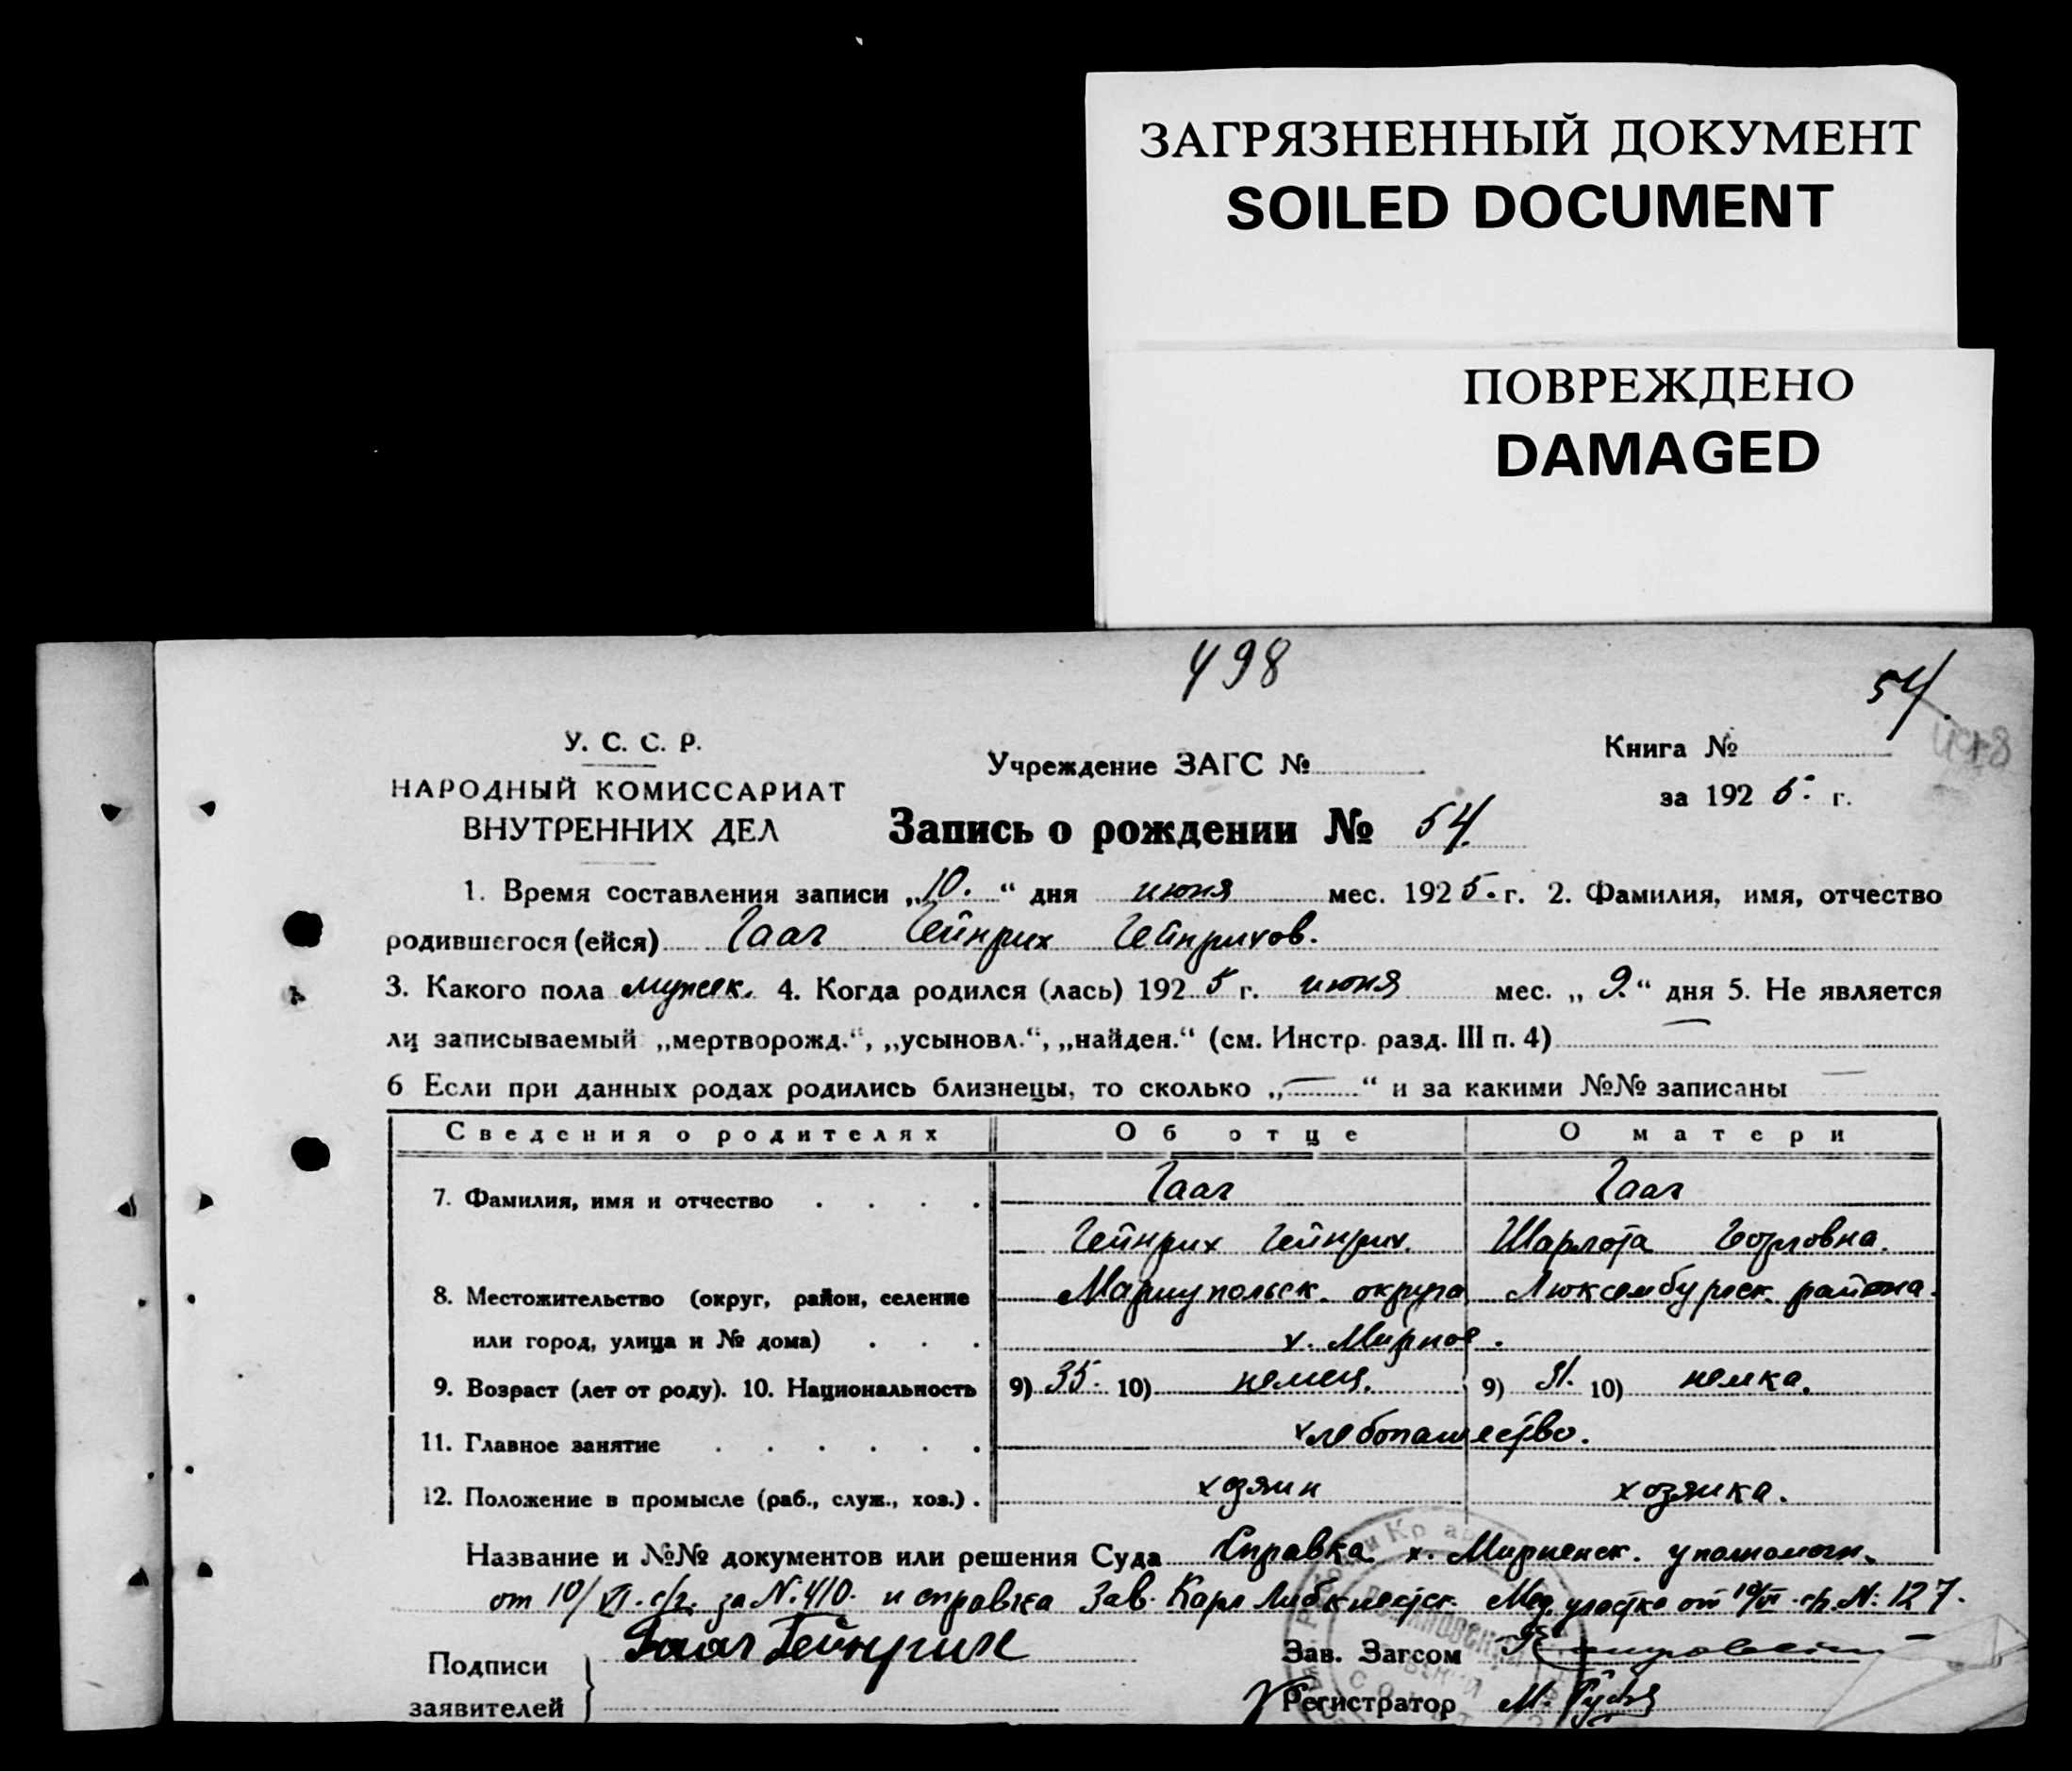 ЗАГРЯЗНЕННЫЙ ДОКУМЕНТ
SOILED DOCUMENT
ПОВРЕЖДЕНО
DAMAGED
498
54.
У. С. С. Р.
НАРОДНЫЙ КОМИССАРИАТ
ВНУТРЕННИХ ДЕЛ
Учреждение ЗАГС №
Книга №
за 1925. г.
Запись о рождении № 54.
1. Время составления записи „10.“ дня июня мес. 1925. г. 2. Фамилия, имя, отчество
родившегося (ейся) Гааг Гейнрих Гейнрихов.
3. Какого пола мужск. 4. Когда родился (лась) 1925 г. июня мес. „9.“ дня 5. Не является
ли записываемый „мертворожд.“, „усыновл.“, „найден.“ (см. Инстр. разд. III п. 4) —
6 Если при данных родах родились близнецы, то сколько „—“ и за какими №№ записаны —
Сведения о родителях Об отце О матери
7. Фамилия, имя и отчество . . . . Гааг Гааг
Гейнрих Гейнрих. Шарлота
8. Местожительство (округ, район, селение Мариупольск. округа Люксембургск. района.
или город, улица и № дома) . . . х. Мирное.
9. Возраст (лет от роду). 10. Национальность 9) 35. 10) немец. 9) 31. 10) немка.
11. Главное занятие . . . . . . хлебопашество.
12. Положение в промысле (раб., служ., хоз.) . хозяин хозяйка.
Название и №№ документов или решения Суда Справка х. Мирненск. уполномоч.
от 10/VI. с/г. за N. 410. и справка Зав. Карл Либкнехтск. Мед. участка от 10/VI с/г. N: 127.
Подписи
заявителей
Гааг Гейнрих
Зав. Загсом
Регистратор М.